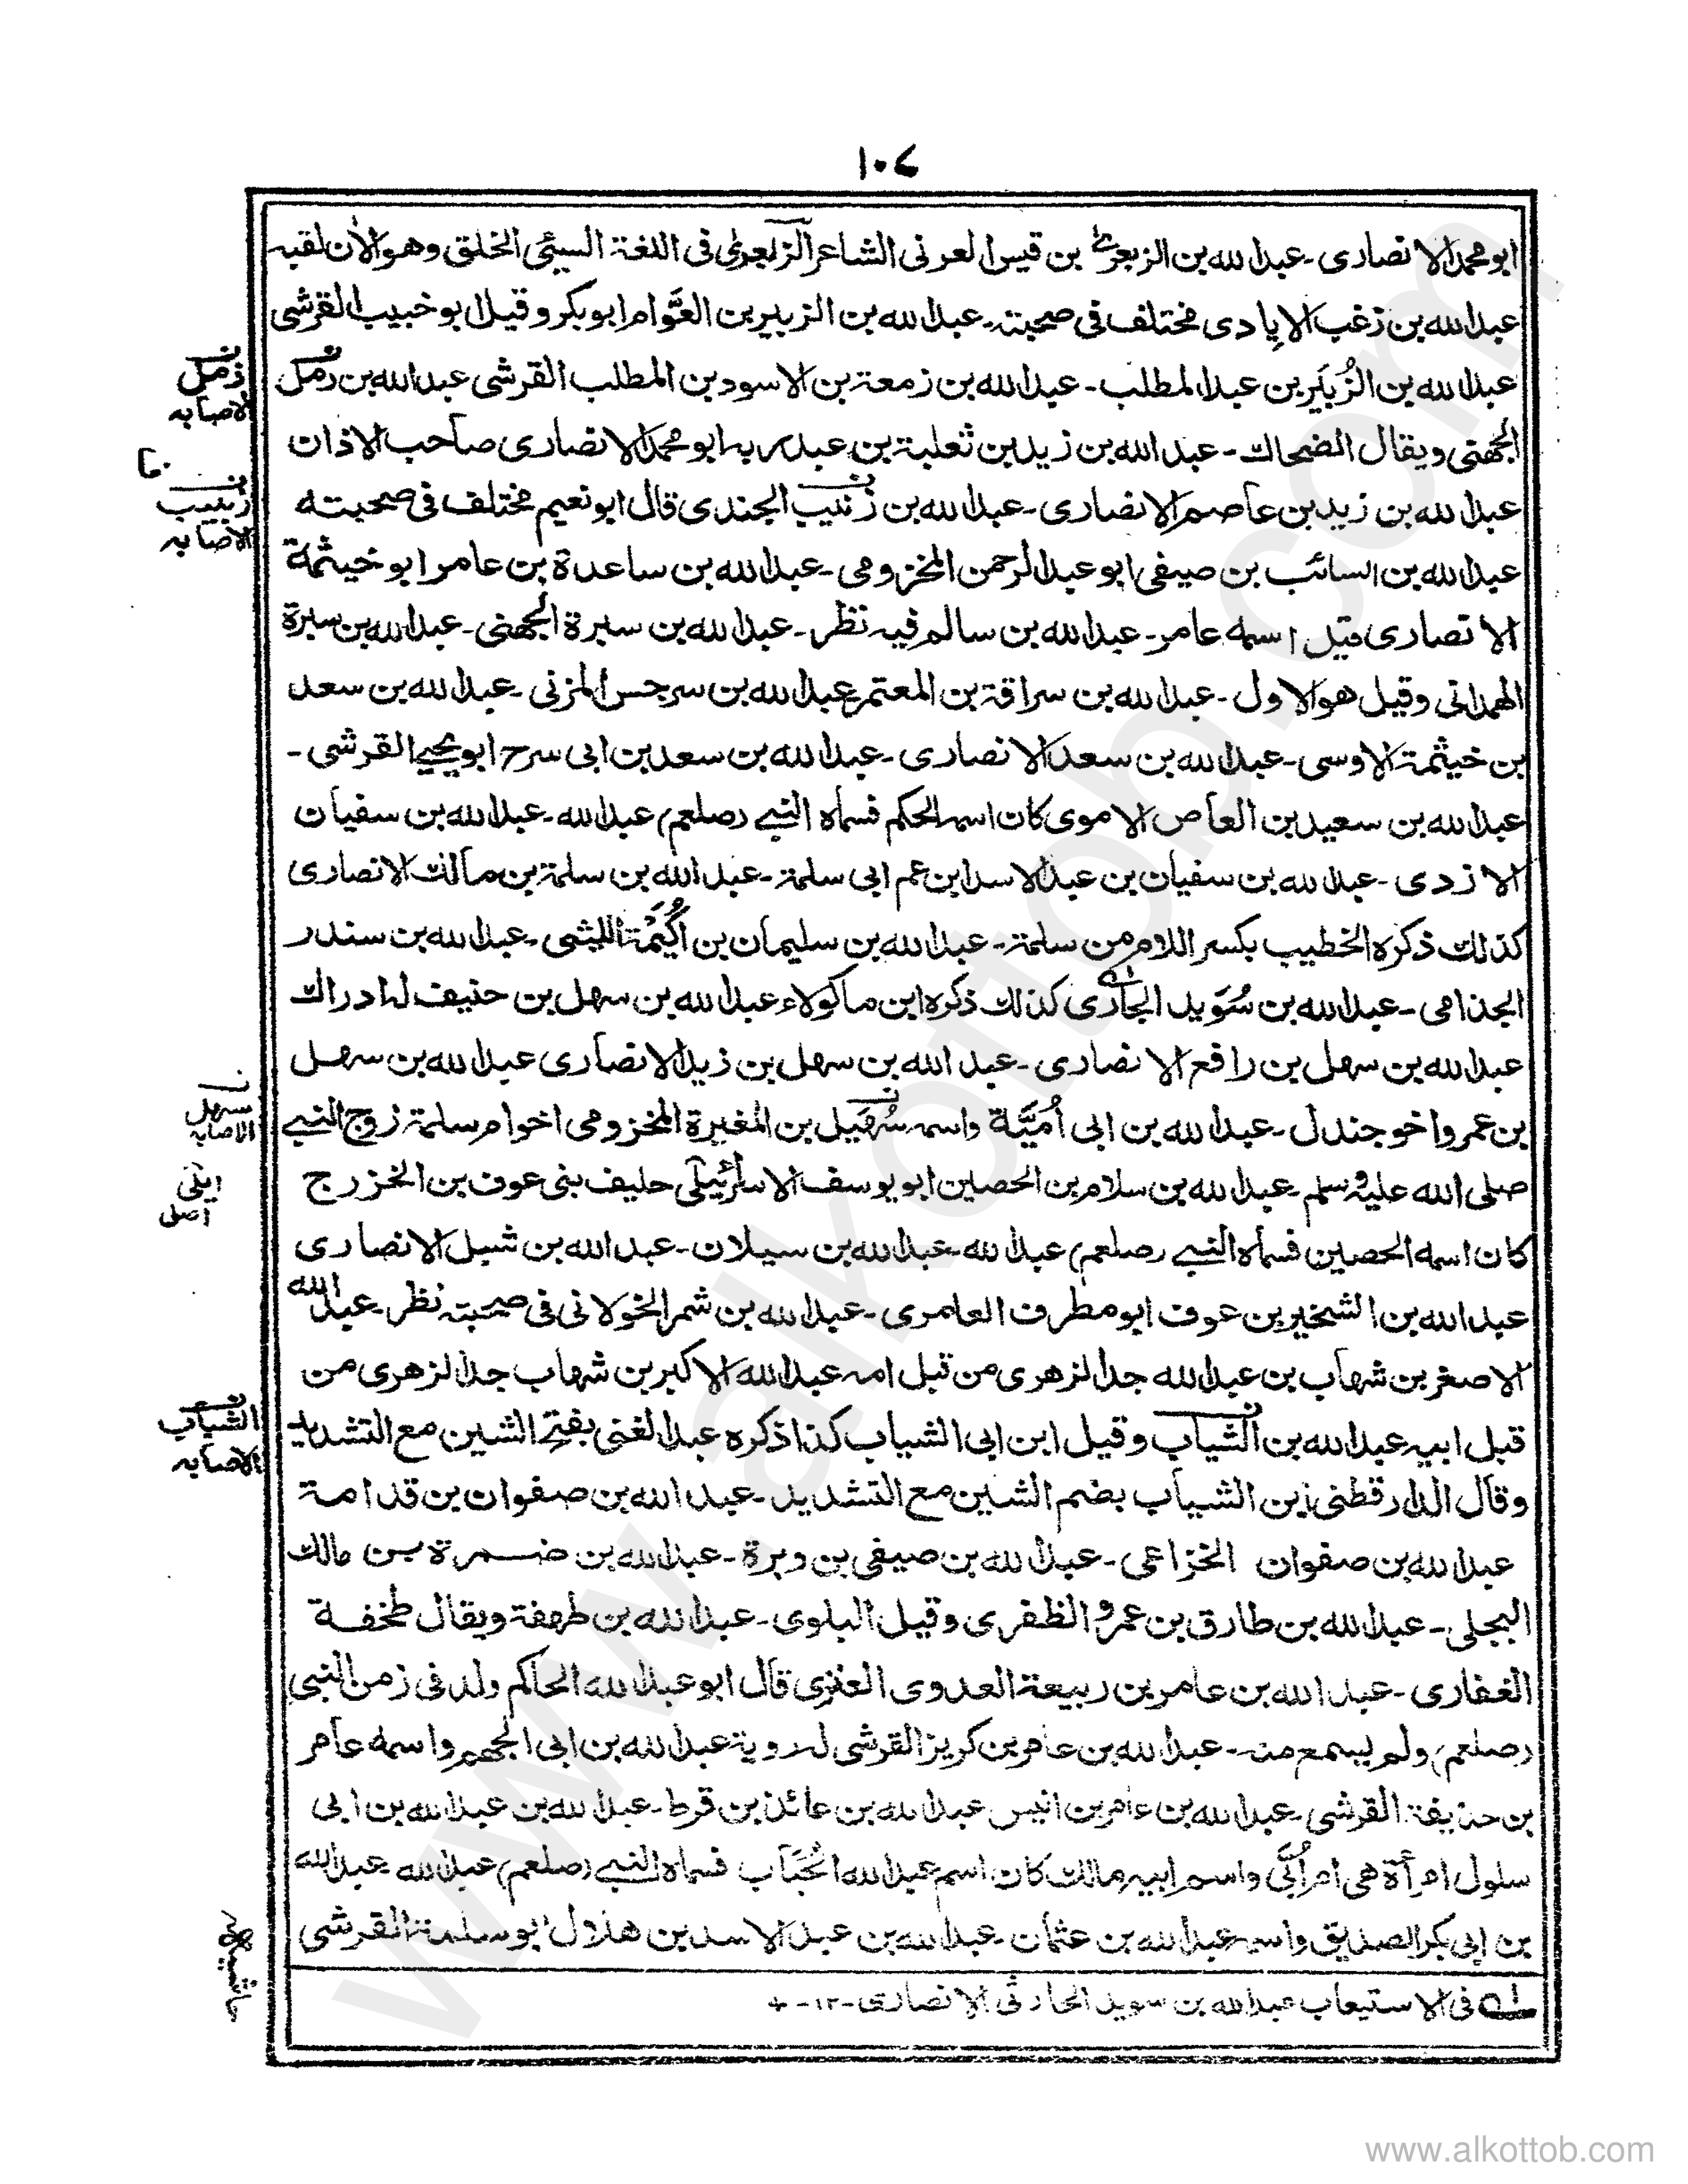 ١٠٧
ابو محمد الانصارى - عبد الله بن الزبعرى بن قيس العرنى الشاعر الزبعرى فى اللغة السيئى الخلق وهو الان لقبه
عبد الله بن زغب الايادى مختلف فى صحبته - عبد الله بن الزبير بن العوَّام ابو بكر وقيل ابو خبيب القرشى
عبد الله بن الزُبَير بن عبد المطلب - عبد الله بن زمعة بن الاسود بن المطلب القرشى عبد الله بن زمل
الجهنى ويقال الضحاك - عبد الله بن زيد بن ثعلبة بن عبد ربه ابو محمد الانصارى صاحب الاذان
عبد الله بن زيد بن عاصم الانصارى - عبد الله بن زنيب الجندى قال ابو نعيم مختلف فى صحبته
عبد الله بن السائب بن صيفى ابو عبد الرحمن المخزومى - عبد الله بن ساعدة بن عامر ابو خيثمة
الانصارى قيل اسمه عامر - عبد الله بن سالم فيه نظر - عبد الله بن سبرة الجهنى - عبد الله بن سبرة
الهمدانى وقيل هو الاول - عبد الله بن سراقة بن المعتمر عبد الله بن سرجس المزنى - عبد الله بن سعد
بن خيثمة الاوسى - عبد الله بن سعد الانصارى - عبد الله بن سعد بن ابى سرح ابو يحيے القرشى -
عبد الله بن سعيد بن العاص الاموى كان اسمه الحكم فسماه النبے (صلعم) عبد الله - عبد الله بن سفيان
الازدى - عبد الله بن سفيان بن عبد الاسد ابن عم ابى سلمة - عبد الله بن سلمة بن مالك الانصارى
كذلك ذكره الخطيب بكسر اللام من سلمة - عبد الله بن سليمان بن اُكَيْمَة الليثى - عبد الله بن سندر
الجذامى - عبد الله بن سُوَيد الحارى كذلك ذكره ابن ماكولاء عبد الله بن سهل بن حنيف له ادراك
عبد الله بن سهل بن رافع الانصارى - عبد الله بن سهل بن زيد الانصارى عبد الله بن سهل
بن عمرو اخو جندل - عبد الله بن ابى اُمَيَّة واسمه سُهَيل بن المغيرة المخزومى اخو ام سلمة زوج النبے
صلى الله عليه وسلم - عبد الله بن سلام بن الحصين ابو يوسف الاسرائيلى حليف بنى عوف بن الخزرج
كان اسمه الحصين فسماه النبے (صلعم) عبد الله - عبد الله بن سيلان - عبد الله بن شبل الانصارى
عبد الله بن الشخير بن عوف ابو مطرف العامرى - عبد الله بن شمر الخولانى فى صحبته نظر - عبد الله
الاصغر بن شهاب بن عبد الله جد الزهرى من قبل امه عبد الله الاكبر بن شهاب جد الزهرى من
قبل ابيه عبد الله بن الشياب وقيل ابن ابى الشياب كذا ذكره عبد الغنى بفتح الشين مع التشديد
وقال الدارقطنى ابن الشياب بضم الشين مع التشديد - عبد الله بن صفوان بن قدامة
عبد الله بن صفوان الخزاعى - عبد الله بن صيفى بن وبرة - عبد الله بن ضمرة بن مالك
البجلى - عبد الله بن طارق بن عمرو الظفرى وقيل البلوى - عبد الله بن طهفة ويقال طخفة
الغفارى - عبد الله بن عامر بن ربيعة العدوى العنزى قال ابو عبد الله الحاكم ولد فى زمن النبى
(صلعم) ولم يسمع منه - عبد الله بن عامر بن كريز القرشى له روية عبد الله بن ابى الجهم واسمه عامر
بن حذيفة القرشى - عبد الله بن عامر بن انيس عبد الله بن عائذ بن قرط - عبد الله بن عبد الله بن ابى
سلول امرأة هى ام اُبَّى واسم ابيه مالك كان اسم عبد الله الحُبَاب فسماه النبے (صلعم) عبد الله عبد الله
بن ابى بكر الصديق واسمه عبد الله بن عثمان - عبد الله بن عبد الاسد بن هلال ابو سلمة القرشى
له فى الاستيعاب عبد الله بن سويد الحارثى الانصارى - ١٢ -
زمل
الاصابه
زبيب
الاصابه
سهل
الاصابه
ايلى
اصلى
الشياب
الاصابه
حاشيه
www.alkottob.com
www.alkottob.com